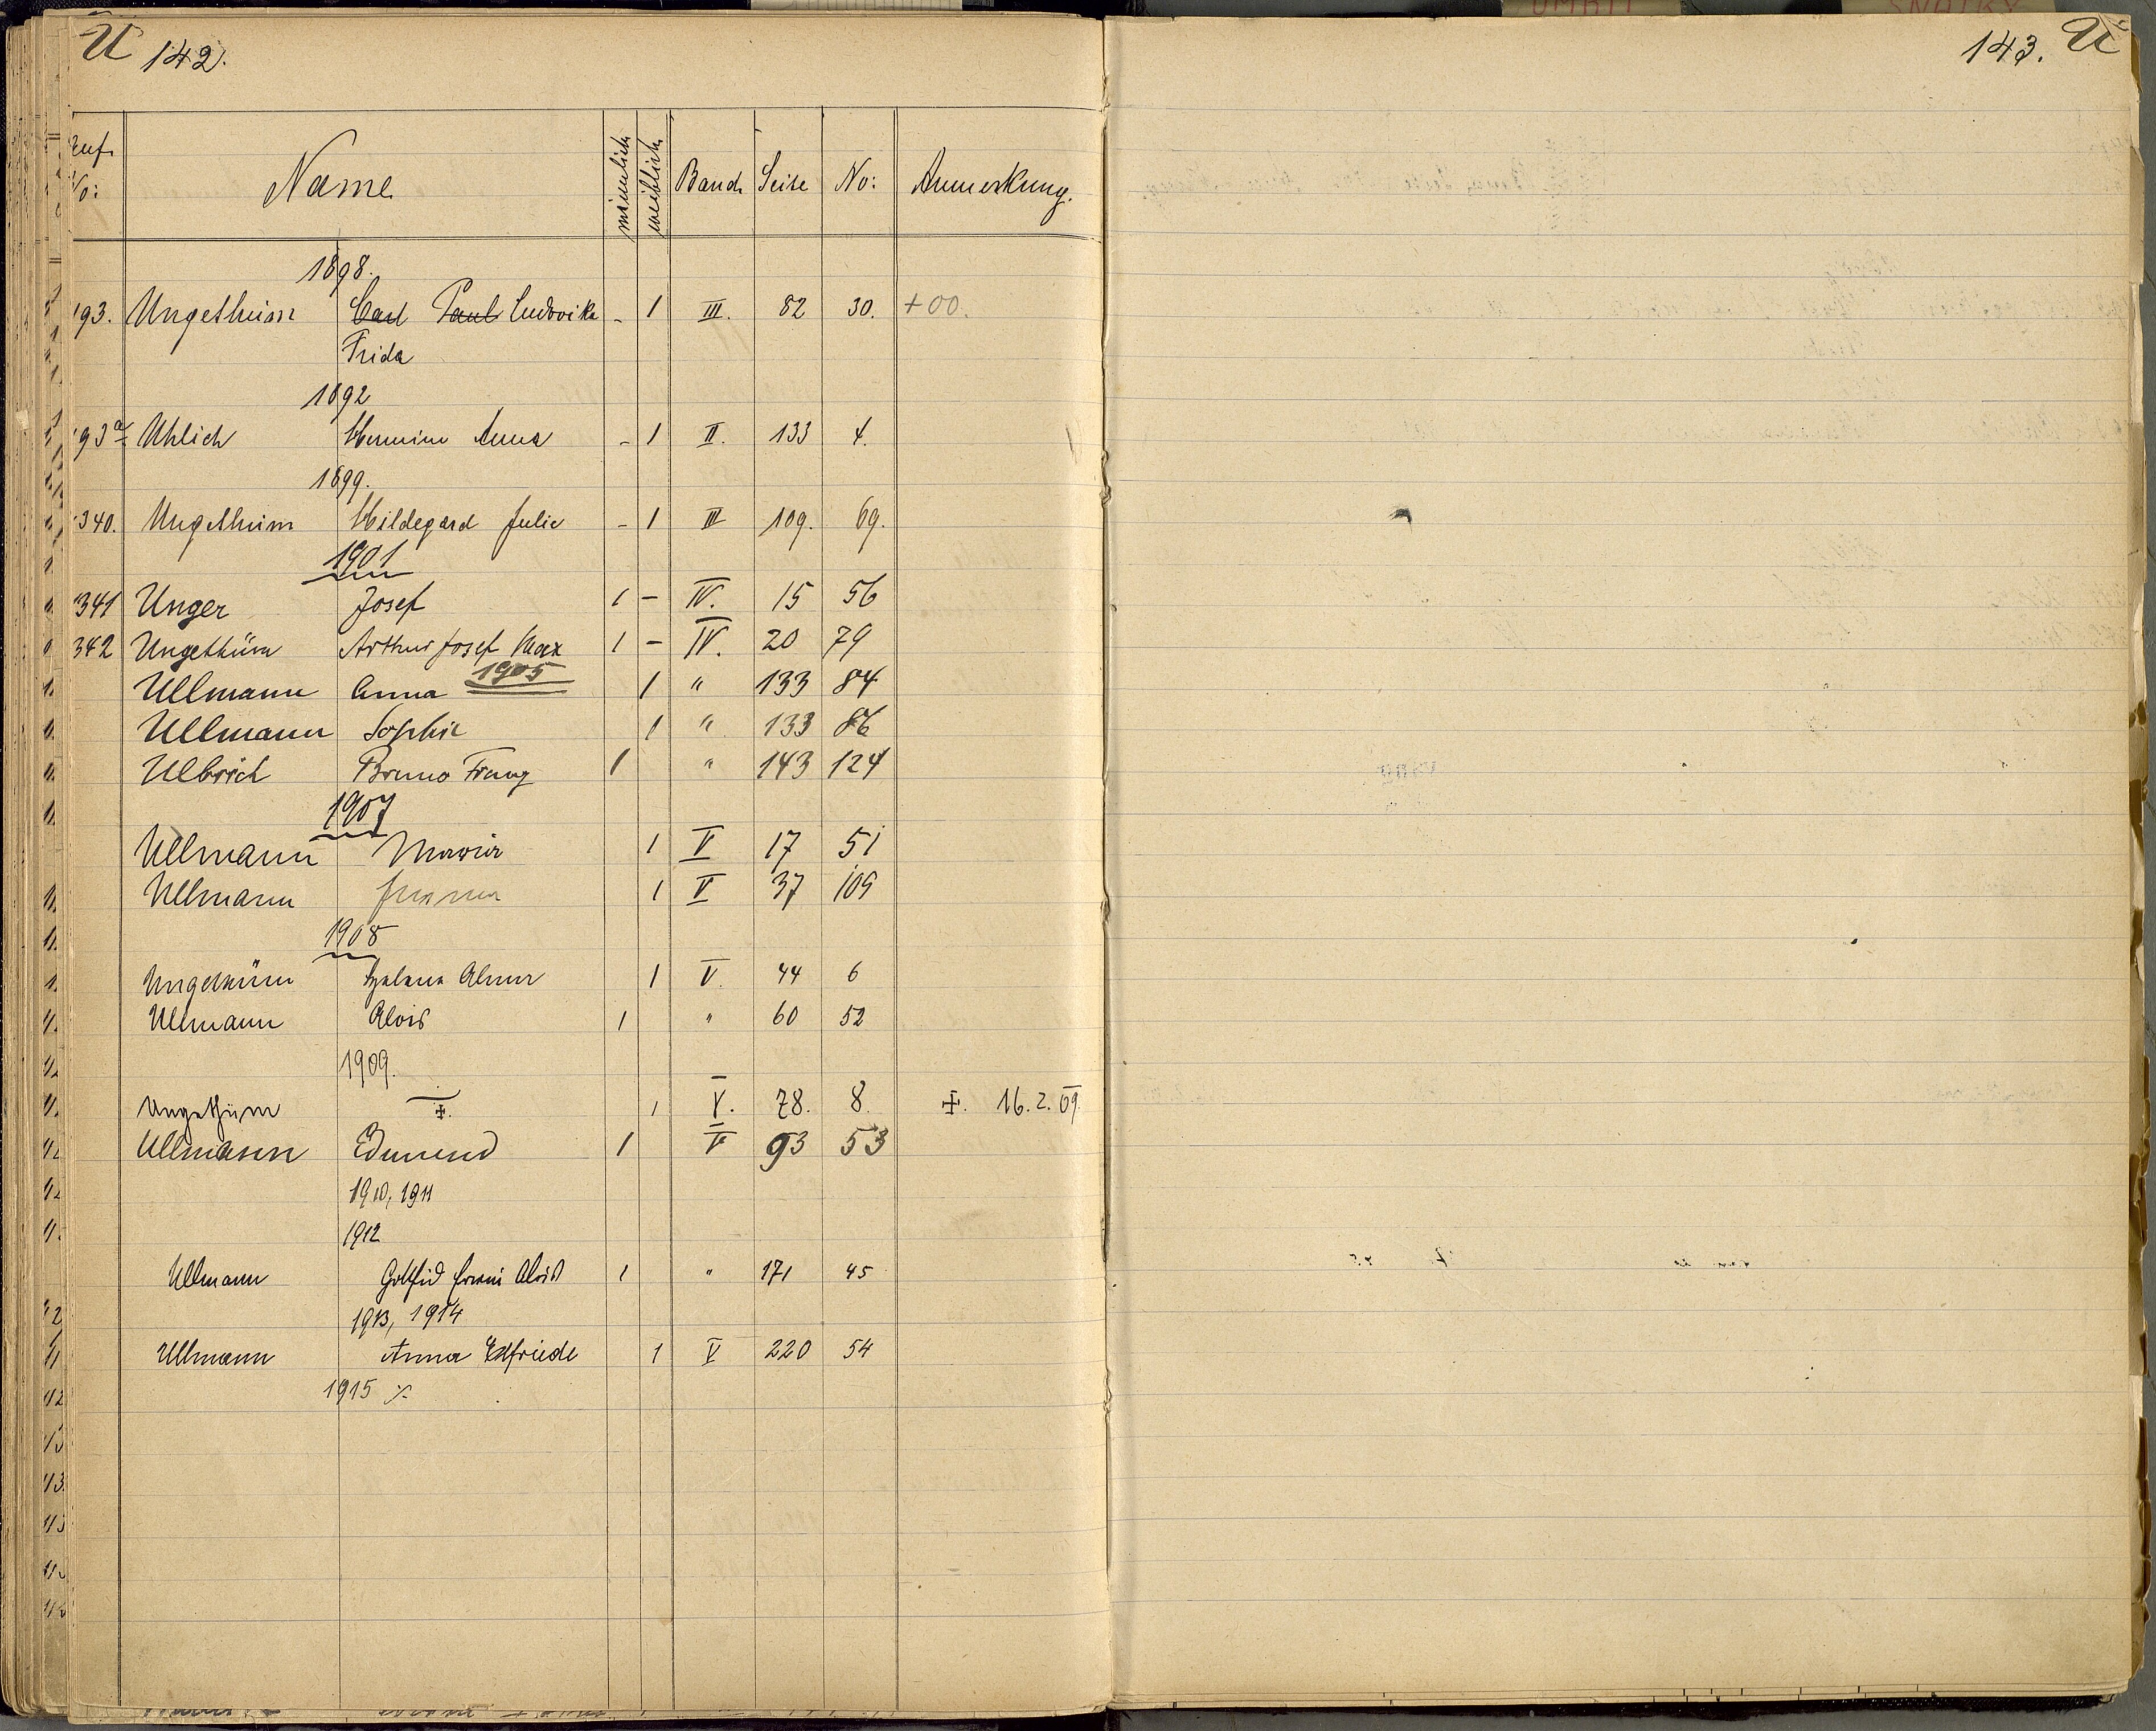 U 142.
143. U
Lauf. No: Name männlich weiblich Band Seite No: Anmerkung.
1898.
193. Ungethüm Carl Paul Ludovika - 1 III. 82 30. +00.
Frida
1892
193a Uhlich Hermine Anna - 1 II. 133 4.
1899.
340. Ungethüm Hildegard Julie - 1 III 109. 69.
1901
341 Unger Josef 1 - IV. 15 56
342 Ungethüm Arthur Josef Max 1 - IV. 20 79
1905
Ullmann Anna 1 " 133 84
Ullmann Sophie 1 " 133 86
Ulbrich Bruno Franz 1 " 143 124
1907
Ullmann Maria 1 V 17 51
Ullmann 1 V 37 109
1908
Ungethüm Helena Alma 1 V. 44 6
Ullmann Alois 1 " 60 52
1909.
Ungethüm ‡. 1 V. 78. 8. ‡. 16.2.09.
Ullmann Edmund 1 V 93 53
1910, 1911
1912
Ullmann Gottfrid Erwin Alois 1 " 171 45
1913, 1914
Ullmann Anna Elfriede 1 V 220 54
1915 ٪